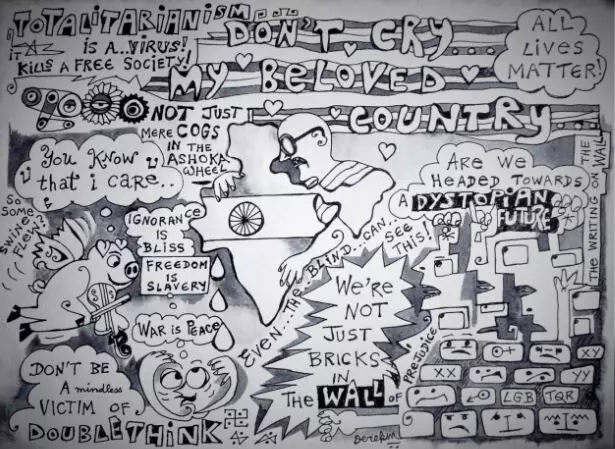 TOTALITARIANISM
IT IS A..VIRUS!
KILLS A FREE SOCIETY!
DON'T CRY...
MY BELOVED
COUNTRY
ALL
LIVES
MATTER!
NOT JUST
MERE COGS
IN THE
ASHOKA
WHEEL
You Know
that i care..
SO
SOME
SWINE
FLEW!
IGNORANce
IS
BLISS
FREEDOM
IS
SLAVERY
WAR is PEACE
DON'T BE
A mindless
VICTIM OF
DOUBLETHINK
EVEN...THE..BLIND..CAN..
SEE
THIS!
WE'RE
NOT
JUST
BRICKS
IN
THE WALL OF
PREJUDICE
ARE WE
HEADED TOWARDS
A DYSTOPIAN
FUTURE
THE WRITING ON THE WALL
XY
XX
YY
LGB
TQR
Derekm